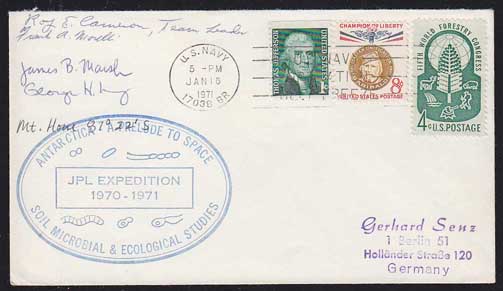 Roy E. Cameron, Team Leader
Frank A. Morelli
James B. Marsh
George H.
Mt. Howe 87°22'S
ANTARCTICA - A PRELUDE TO SPACE
JPL EXPEDITION
1970-1971
SOIL MICROBIAL & ECOLOGICAL STUDIES
U.S. NAVY
5 - PM
JAN 15
1971
17038 BR
THOMAS JEFFERSON
UNITED STATES
1¢
CHAMPION OF LIBERTY
8¢
UNITED STATES POSTAGE
FIFTH WORLD FORESTRY CONGRESS
4¢ U.S. POSTAGE
Gerhard Senz
1 Berlin 51
Holländer Straße 120
Germany